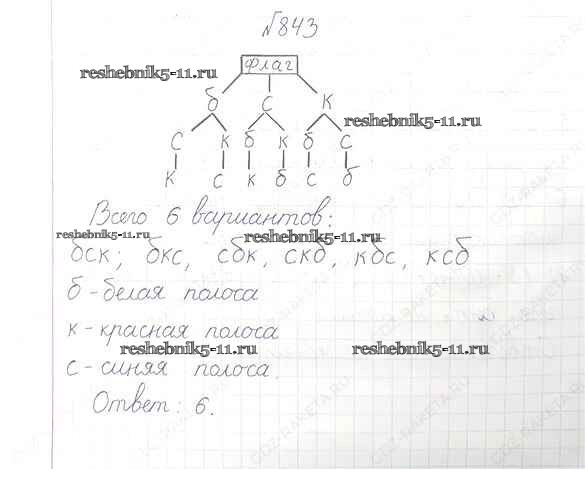 №843
reshebnik5-11.ru
флаг
reshebnik5-11.ru
б с к
с к б к б с
к с к б с б
Всего 6 вариантов:
reshebnik5-11.ru
reshebnik5-11.ru
бск; бкс, сбк, скб, кбс, ксб
б - белая полоса
к - красная полоса
reshebnik5-11.ru
reshebnik5-11.ru
с - синяя полоса.
Ответ: 6.